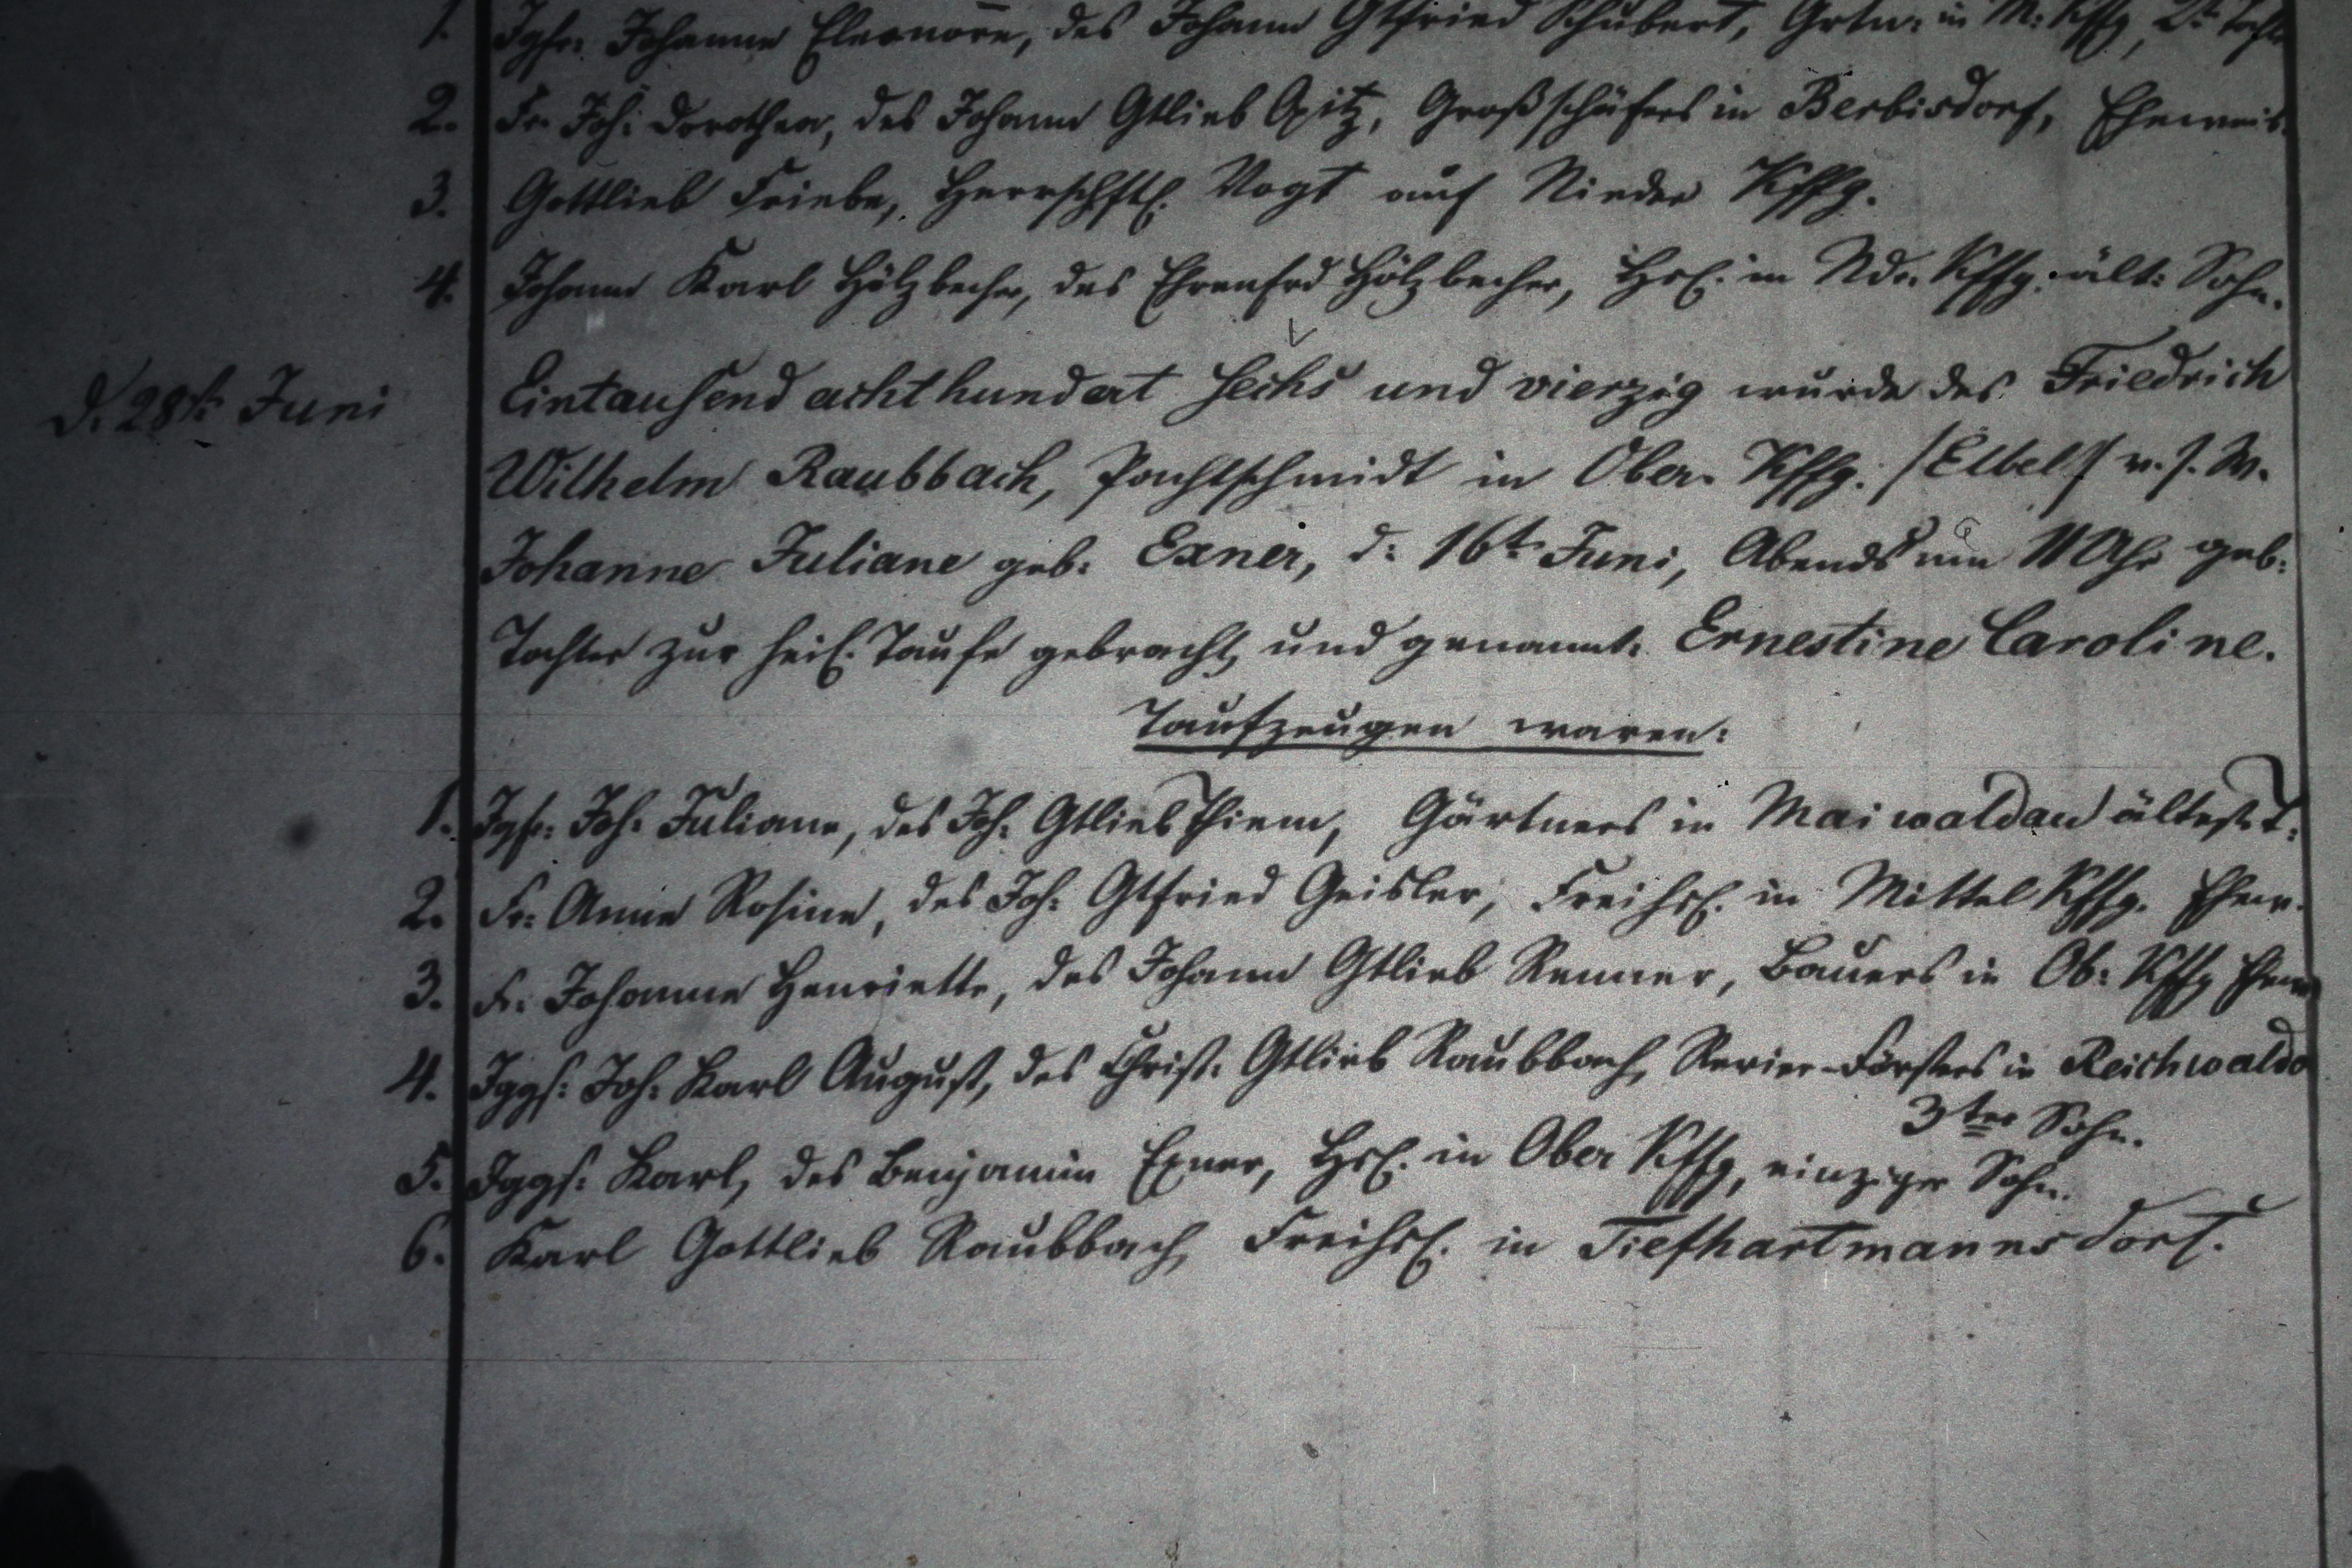 1. Jgfr. Johanne Eleonore, des Johann Gtfried Schubert, Grtn: in M: Kffg, 2te Tocht
2. Fr. Joh: Dorothea, des Johann Gtlieb Opitz, Großschäfers in Berbisdorf, Eheweib.
3. Gottlieb Friebe, Herrschftl. Vogt auf Nieder Kffg.
4. Johann Karl Hölzbecher, des Ehrenfrd Hölzbecher, Hsl. in Ndr. Kffg. ält: Sohn.
d. 28t. Juni
Eintausend achthundert sechs und vierzig wurde des Friedrich
Wilhelm Raubbach, Pachtschmidt in Ober. Kffg. /Elbel/ v. s. W.
Johanne Juliane geb: Exner, d: 16t Juni, Abends um 11 Uhr geb:
Tochter zur heil. Taufe gebracht und genannt: Ernestine Caroline.
Taufzeugen waren:
1. Jgfr: Joh: Juliane, des Joh: Gtlieb Thiem, Gärtners in Maiwaldau ältest. T.
2. Fr: Anna Rosine, des Joh: Gtfried Geisler, Freihsl. in Mittel Kffg. Ehew.
3. Fr. Johanne Henriette, des Johann Gtlieb Renner, Bauers in Ob: Kffg Ehew
4. Jggs: Joh: Karl August, des Christ: Gtlieb Raubbach, Revier-Försters in Reichwaldo
3ter Sohn.
5. Jggs: Karl, des Benjamin Exner, Hsl. in Ober Kffg, einziger Sohn.
6. Karl Gottlieb Raubbach, Freihsl. in Tiefhartmannsdorf.